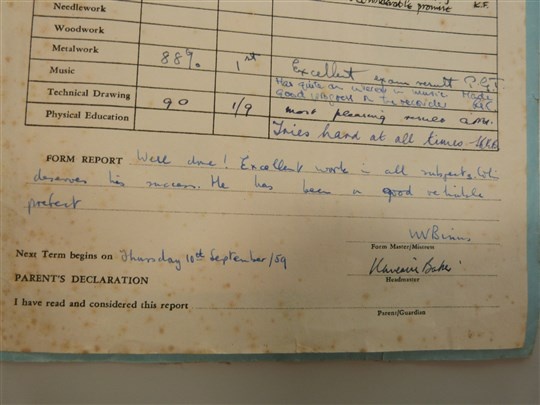 considerable promise K.F.
Needlework
Woodwork
Metalwork 88% 1st Excellent exam result
Music Has quite an interest in music. Made
good progress on the recorder
Technical Drawing 90 1/9 most pleasing results
Physical Education Tries hard at all times
FORM REPORT Well done! Excellent work in all subjects.
deserves his success. He has been a good reliable
prefect
Form Master/Mistress
Next Term begins on Thursday 10th September/59
Headmaster
PARENT'S DECLARATION
I have read and considered this report
Parent/Guardian